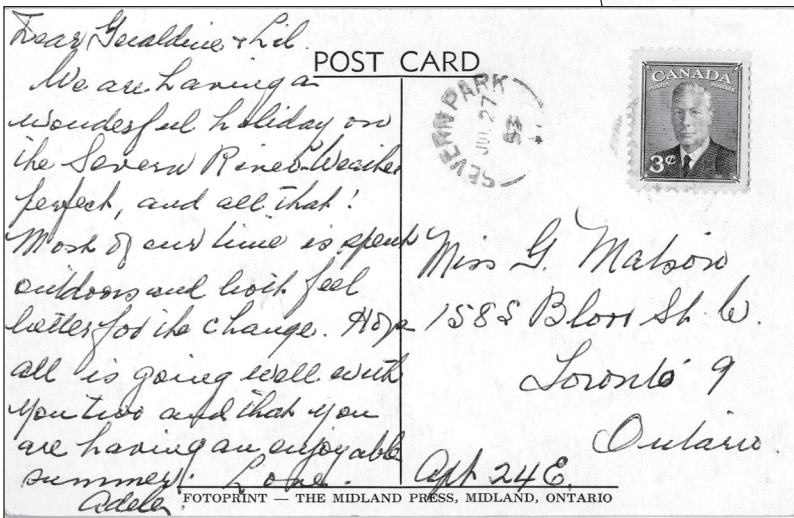 Dear Geraldine & Lil.
We are having a
wonderful holiday on
the Severn River. Weather
perfect, and all that!
Most of our time is spent
outdoors and both feel
better for the change. Hope
all is going well with
you two and that you
are having an enjoyable
summer. Love.
Adele.
POST CARD
SEVERN PARK
JUL 27
CANADA
POSTES POSTAGE
3¢
Miss G. Matson
1585 Bloor St. W.
Toronto 9
Ontario.
Apt 24E.
FOTOPRINT — THE MIDLAND PRESS, MIDLAND, ONTARIO